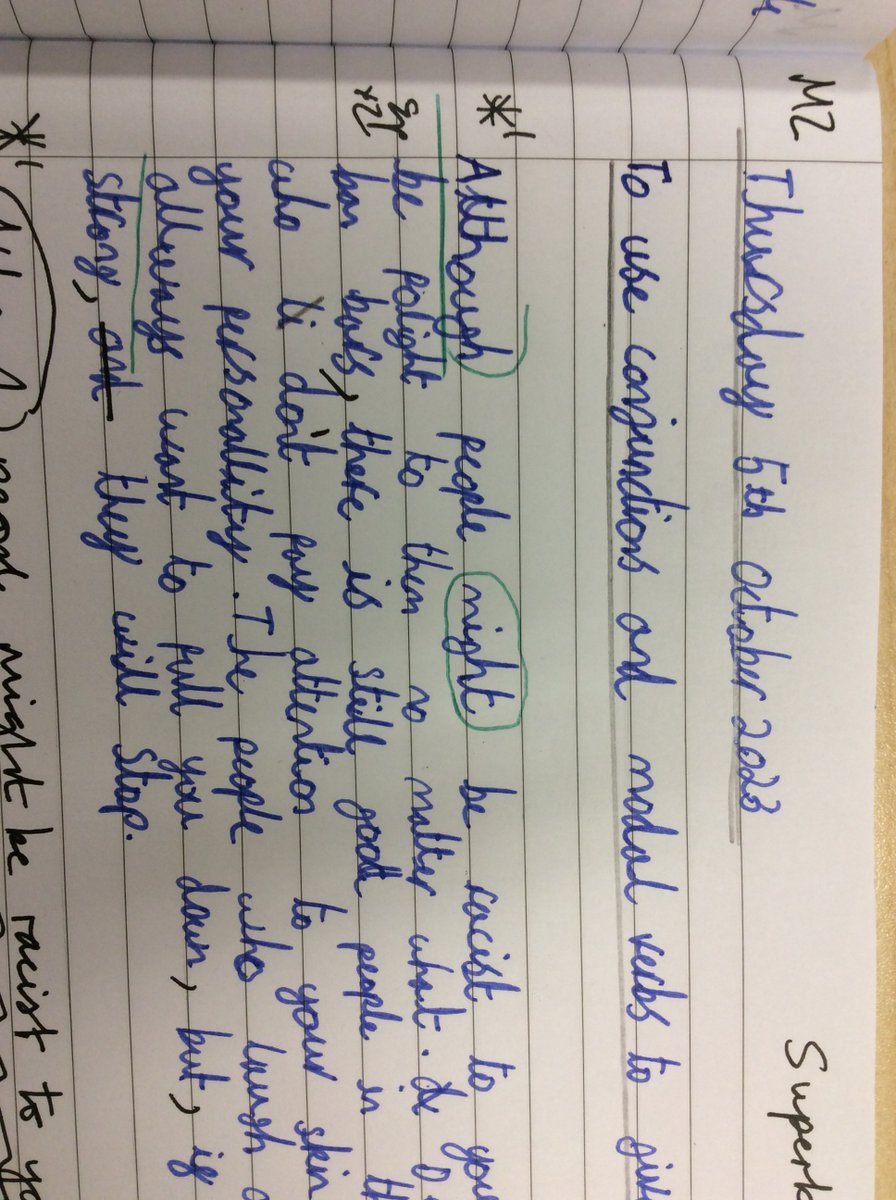 M2
Thursday 5th october 2023
Superh
To use conjunctions and modal verbs to giv
*1 Although people might be racist to you
be polight to them no matter what.
sp
12x
bar bars, there is still good people in th
who don't pay attention to your skin
your personallity. The people who laugh
allways want to pull you down, but, if
strong, and they will stop.
*1
people might be racist to yo